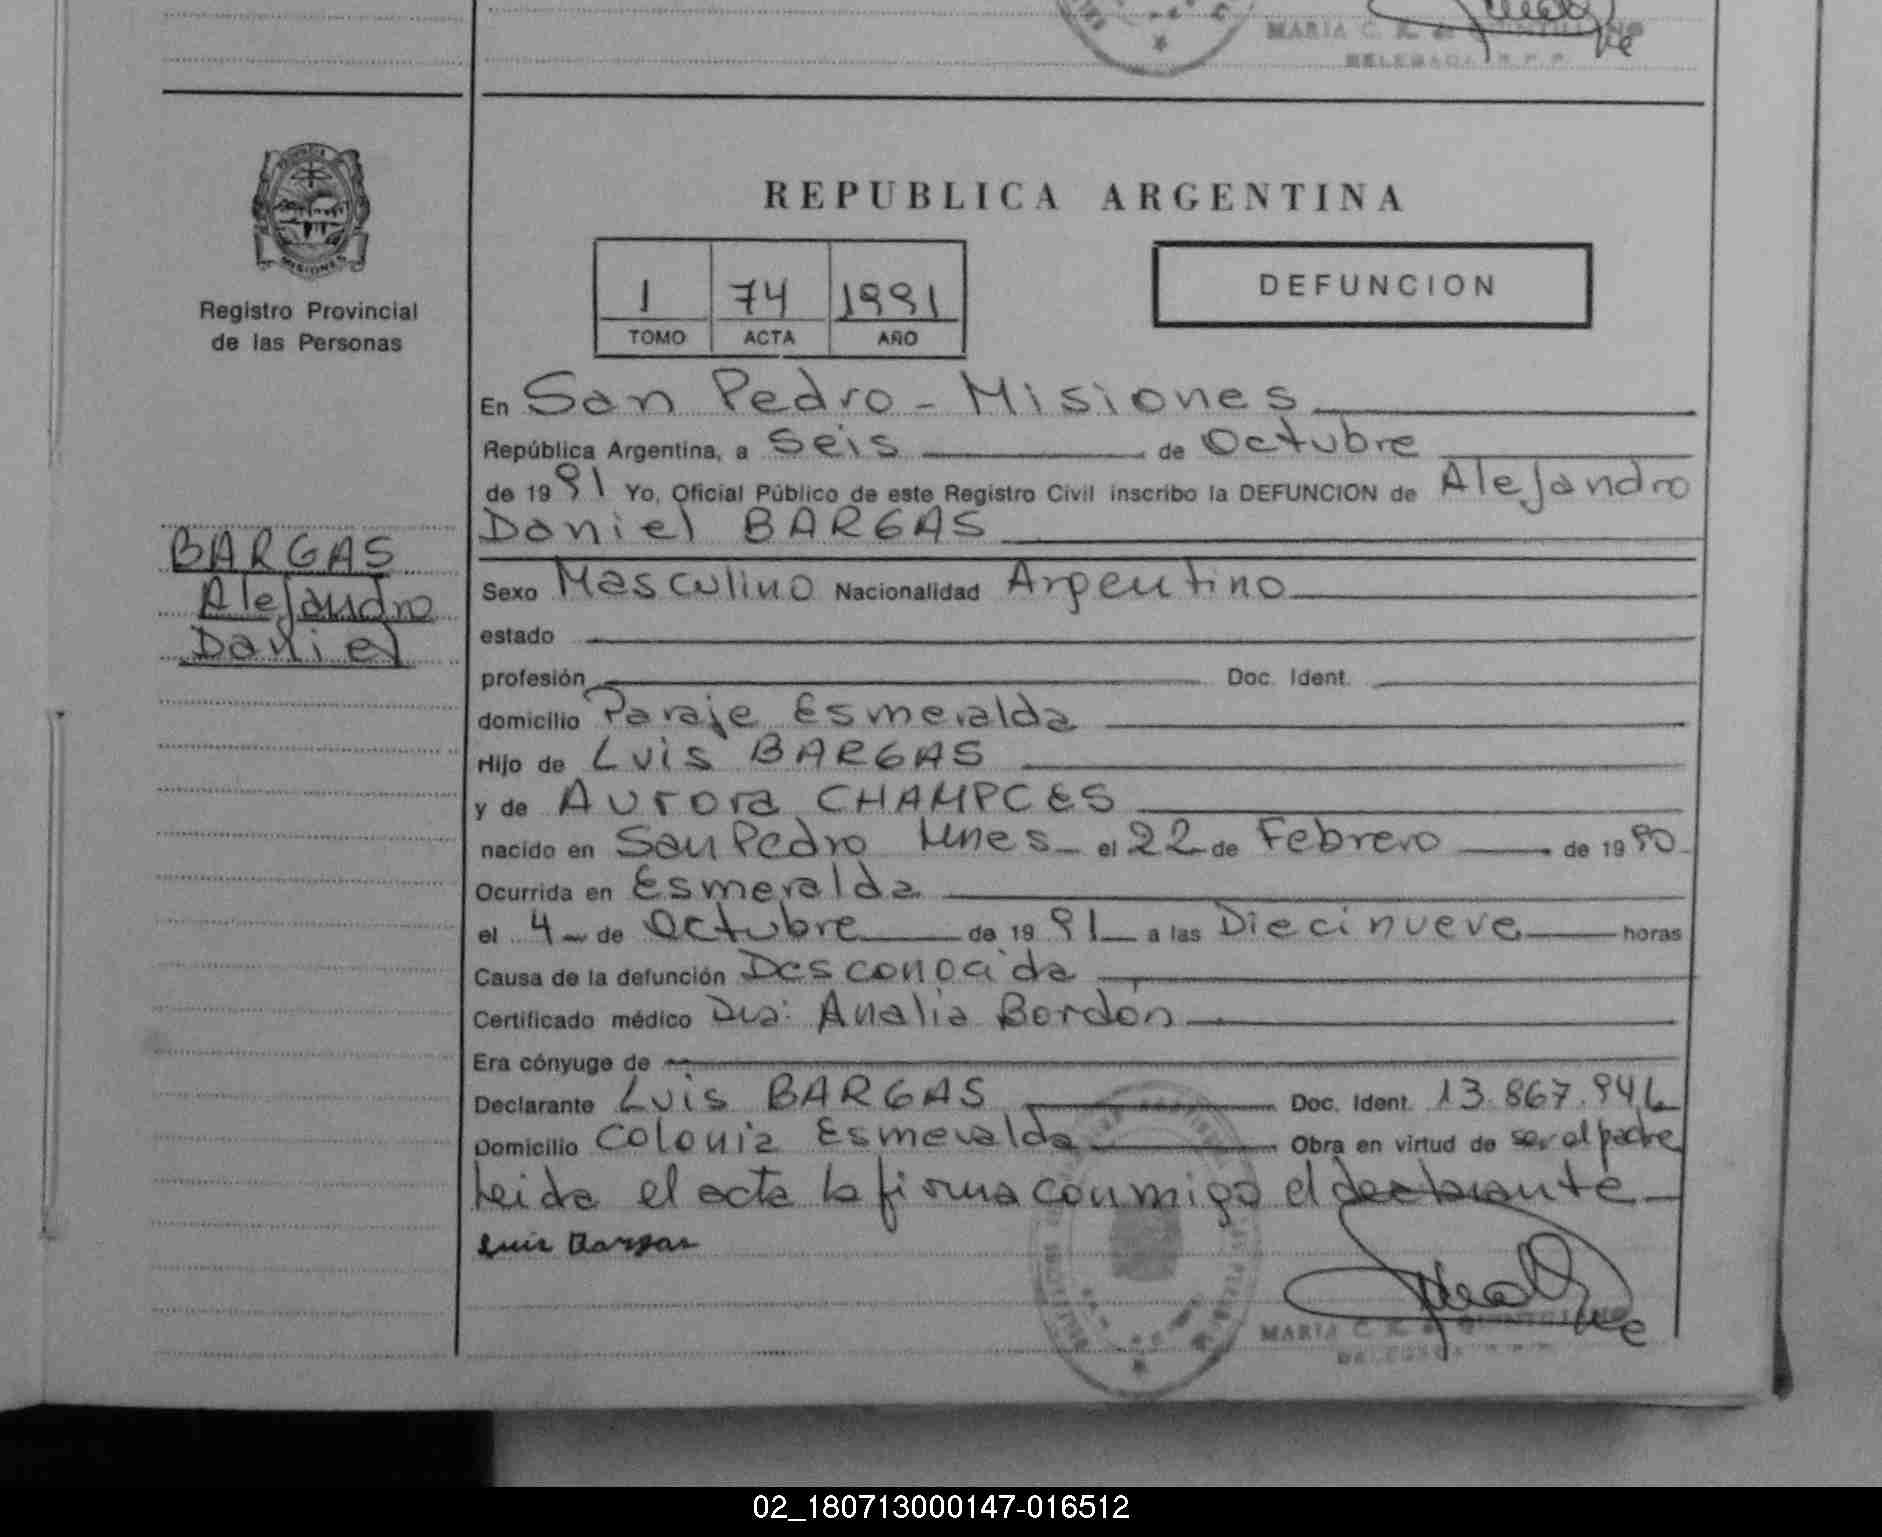 MARIA C. R. de
DELEGADA R. P. P.
PROVINCIA
MISIONES
Registro Provincial
de las Personas
REPUBLICA ARGENTINA
1 74 1991
TOMO ACTA AÑO
DEFUNCION
En San Pedro - Misiones
República Argentina, a Seis de Octubre
de 1991 Yo, Oficial Público de este Registro Civil inscribo la DEFUNCION de Alejandro
Daniel BARGAS
BARGAS
Alejandro
Daniel
Sexo Masculino Nacionalidad Argentino
estado
profesión Doc. Ident.
domicilio Paraje Esmeralda
Hijo de Luis BARGAS
y de Aurora CHAMPCES
nacido en San Pedro Mnes el 22 de Febrero de 19
Ocurrida en Esmeralda
el 4 de Octubre de 1991 a las Diecinueve horas
Causa de la defunción Desconocida
Certificado médico Dra: Analia Bordón
Era cónyuge de
Declarante Luis BARGAS Doc. Ident. 13.867.946
Domicilio Colonia Esmeralda Obra en virtud de ser el padre
Leida el acta la firma conmigo el declarante
Luis Bargas
MARIA C. R. de
DELEGADA R. P. P.
02_180713000147-016512